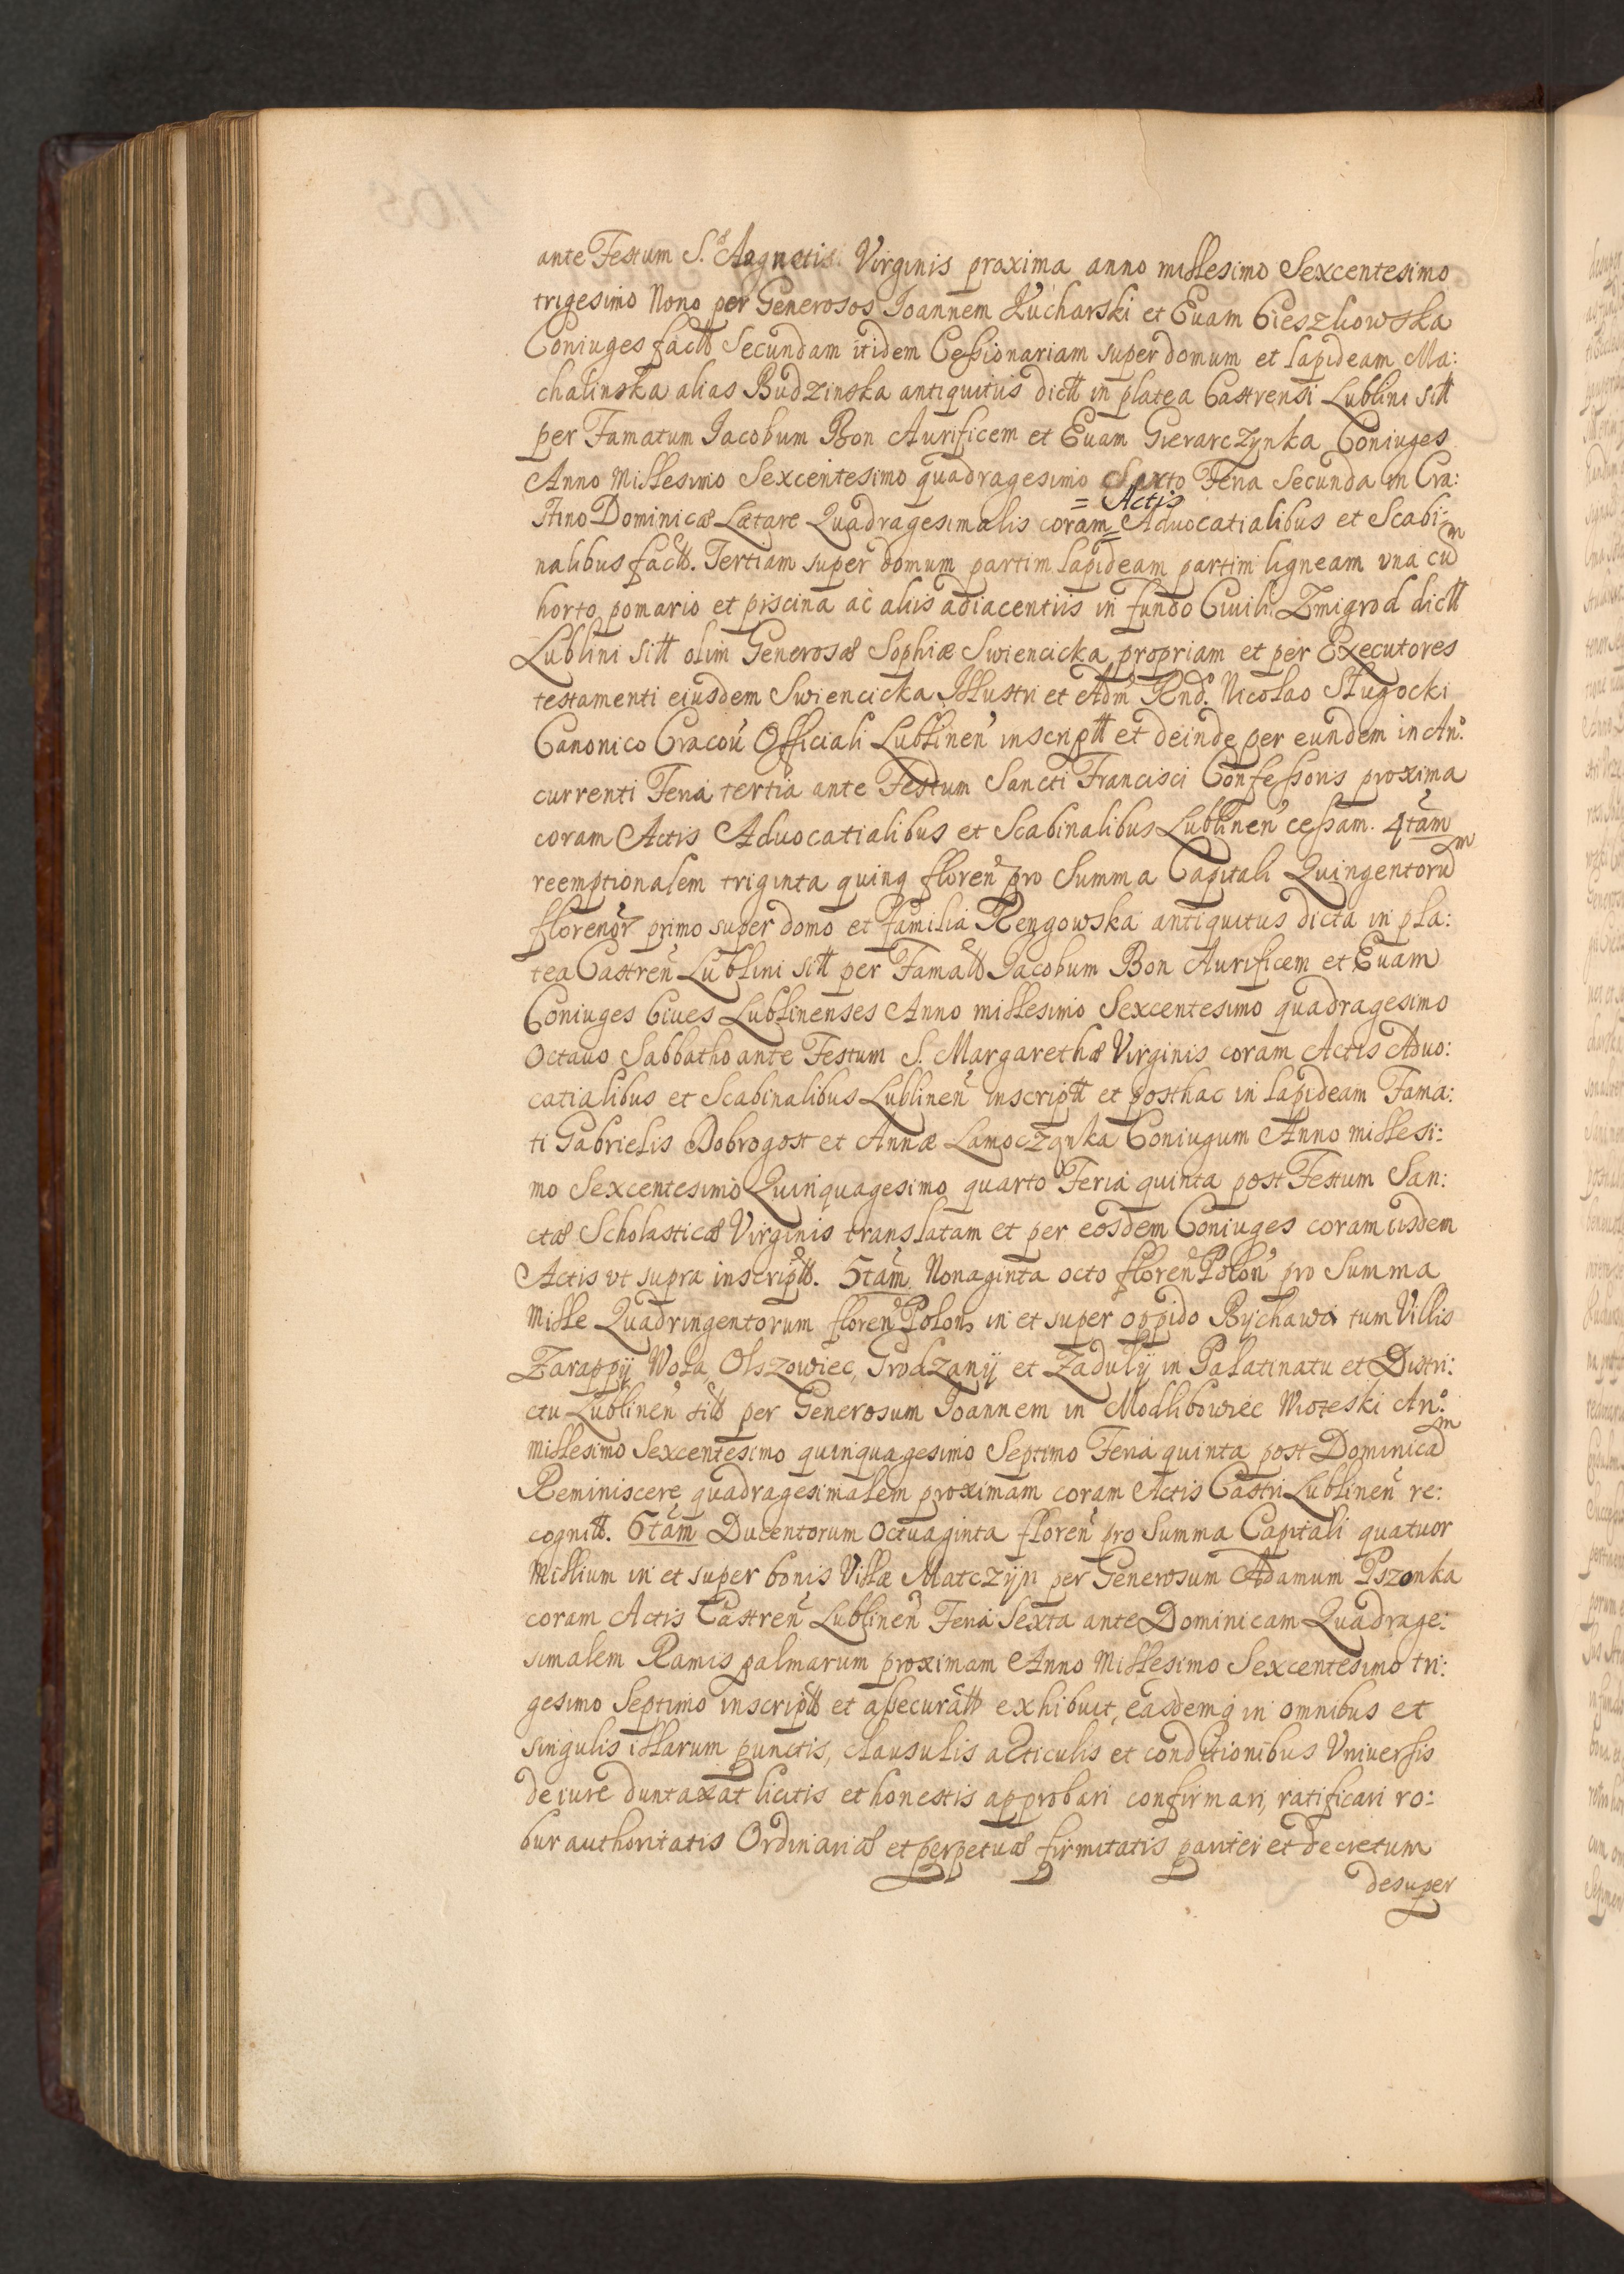 ante Festum S. Aagnetis Virginis proxima anno millesimo Sexcentesimo
trigesimo Nono per Generosos Joannem Kucharski et Euam Cieszkowska
Coniuges factt Secundam itidem Cessionariam super domum et lapideam Ma:
chalinska alias Budzinska antiquitus dictt in platea Castrensi Lublini sitt
per Famatum Jacobum Bon Aurificem et Euam Gierarczynka Coniuges
Anno Millesimo Sexcentesimo quadragesimo Sexto Feria Secunda in Cra:
= Actis
stino Dominicæ Lætare Quadragesimalis coram = Aduocatialibus et Scabi:
nalibus factt. Tertiam super domum partim lapideam partim ligneam vna cum
horto, pomario et piscina ac aliis adiacentiis in fundo Ciuili Zmigrod dictt
Lublini sitt olim Generosæ Sophiæ Swiencicka propriam et per Executores
testamenti eiusdem Swiencicka Illustri et Adm Rnd. Nicolao Slugocki
Canonico Cracou Officiali Lublinen inscriptt et deinde per eundem in An:
currenti Feria tertia ante Festum Sancti Francisci Confessoris proxima
coram Actis Aduocatialibus et Scabinalibus Lublinen cessam. 4tam
reemptionalem triginta quinq floren pro Summa Capitali Quingentorum
florenor primo super domo et familia Rengowska antiquitus dicta in pla:
tea Castren Lublini sitt per Famatt Jacobum Bon Aurificem et Euam
Coniuges Ciues Lublinenses Anno millesimo Sexcentesimo quadragesimo
Octauo Sabbatho ante Festum S. Margarethæ Virginis coram Actis Aduo:
catialibus et Scabinalibus Lublinen inscriptt et posthac in lapideam Fama:
ti Gabrielis Dobrogost et Annæ Lamoczynka Coniugum Anno millesi:
mo Sexcentesimo Quinquagesimo quarto Feria quinta post Festum San:
ctæ Scholasticæ Virginis translatam et per eosdem Coniuges coram iisdem
Actis vt supra inscriptt. 5tam Nonaginta octo floren Polon pro Summa
Mille Quadringentorum floren Polon in et super oppido Bychawa tum Villis
Zarappy Wola, Olszowiec, Grodzany et Zaduly in Palatinatu et Distri:
ctu Lublinen sitt per Generosum Joannem in Modlibowiec Wioteski An:
millesimo Sexcentesimo quinquagesimo Septimo Feria quinta post Dominicam
Reminiscere quadragesimalem proximam coram Actis Castri Lublinen re:
cognitt. 6tam Ducentorum Octuaginta floren pro Summa Capitali quatuor
Millium in et super bonis Villæ Matczyn per Generosum Adamum Pszonka
coram Actis Castren Lublinen Feria Sexta ante Dominicam Quadrage:
simalem Ramis palmarum proximam Anno Millesimo Sexcentesimo tri:
gesimo Septimo inscriptt et assecuratt exhibuit, easdemq in omnibus et
singulis illarum punctis, clausulis articulis et conditionibus Vniuersis
de iure duntaxat licitis et honestis approbari confirmari, ratificari ro:
bur authoritatis Ordinariæ et perpetuæ firmitatis pariter et decretum
desuper